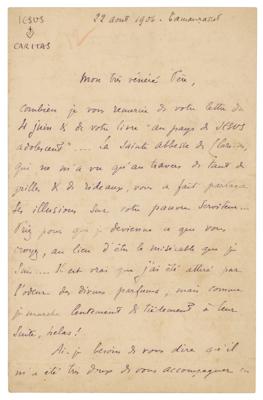 JESUS
CARITAS
22 aout 1906. Tamanrasset
Mon très vénéré Père,
Combien je vous remercie de votre lettre du
4 juin & de votre livre "au pays de JESUS
adolescent" .... La Sainte abbesse des Clarisses,
qui ne m'a vu qu'au travers de tant de
grilles & de rideaux, vous a fait partager
ses illusions sur votre pauvre serviteur...
Priez pour que je devienne ce que vous
croyez, au lieu d'être le misérable que je
suis.... Il est vrai que j'ai été attiré par
l'odeur des divins parfums, mais comme
je marche lentement & tièdement à leur
suite, hélas!
Ai-je besoin de vous dire qu'il
m'a été très doux de vous accompagner en